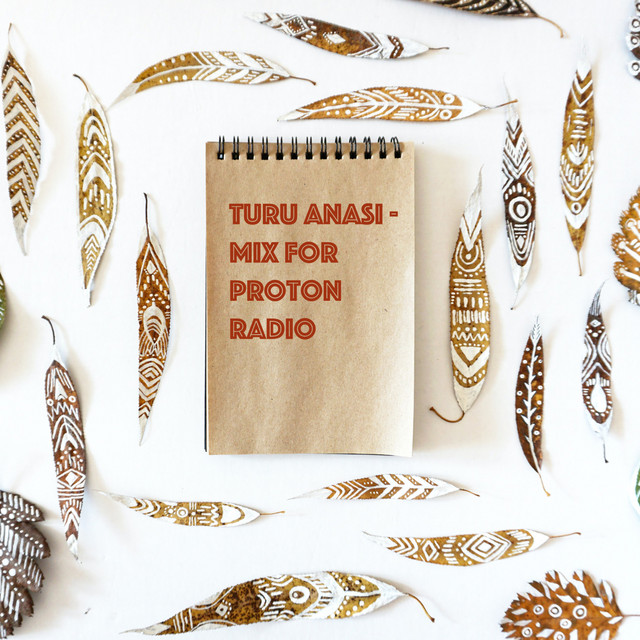 TURU ANASI -
MIX FOR
PROTON
RADIO